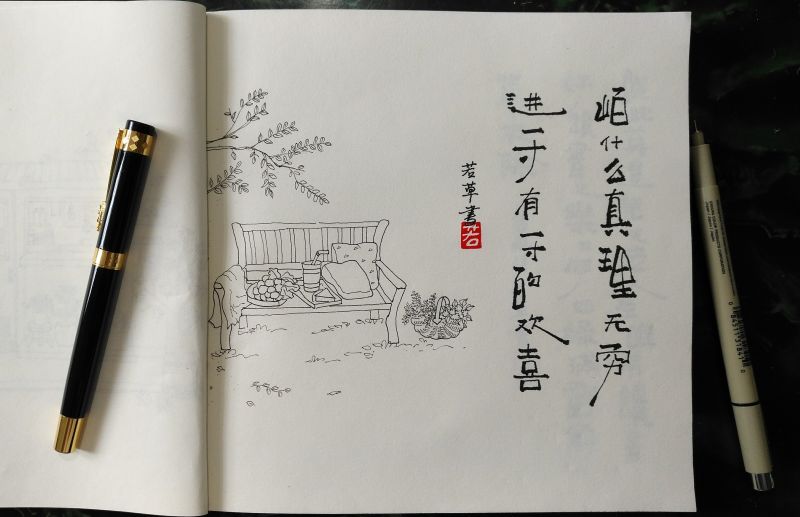 怕什么真理无穷
进一寸有一寸的欢喜
若草書
若